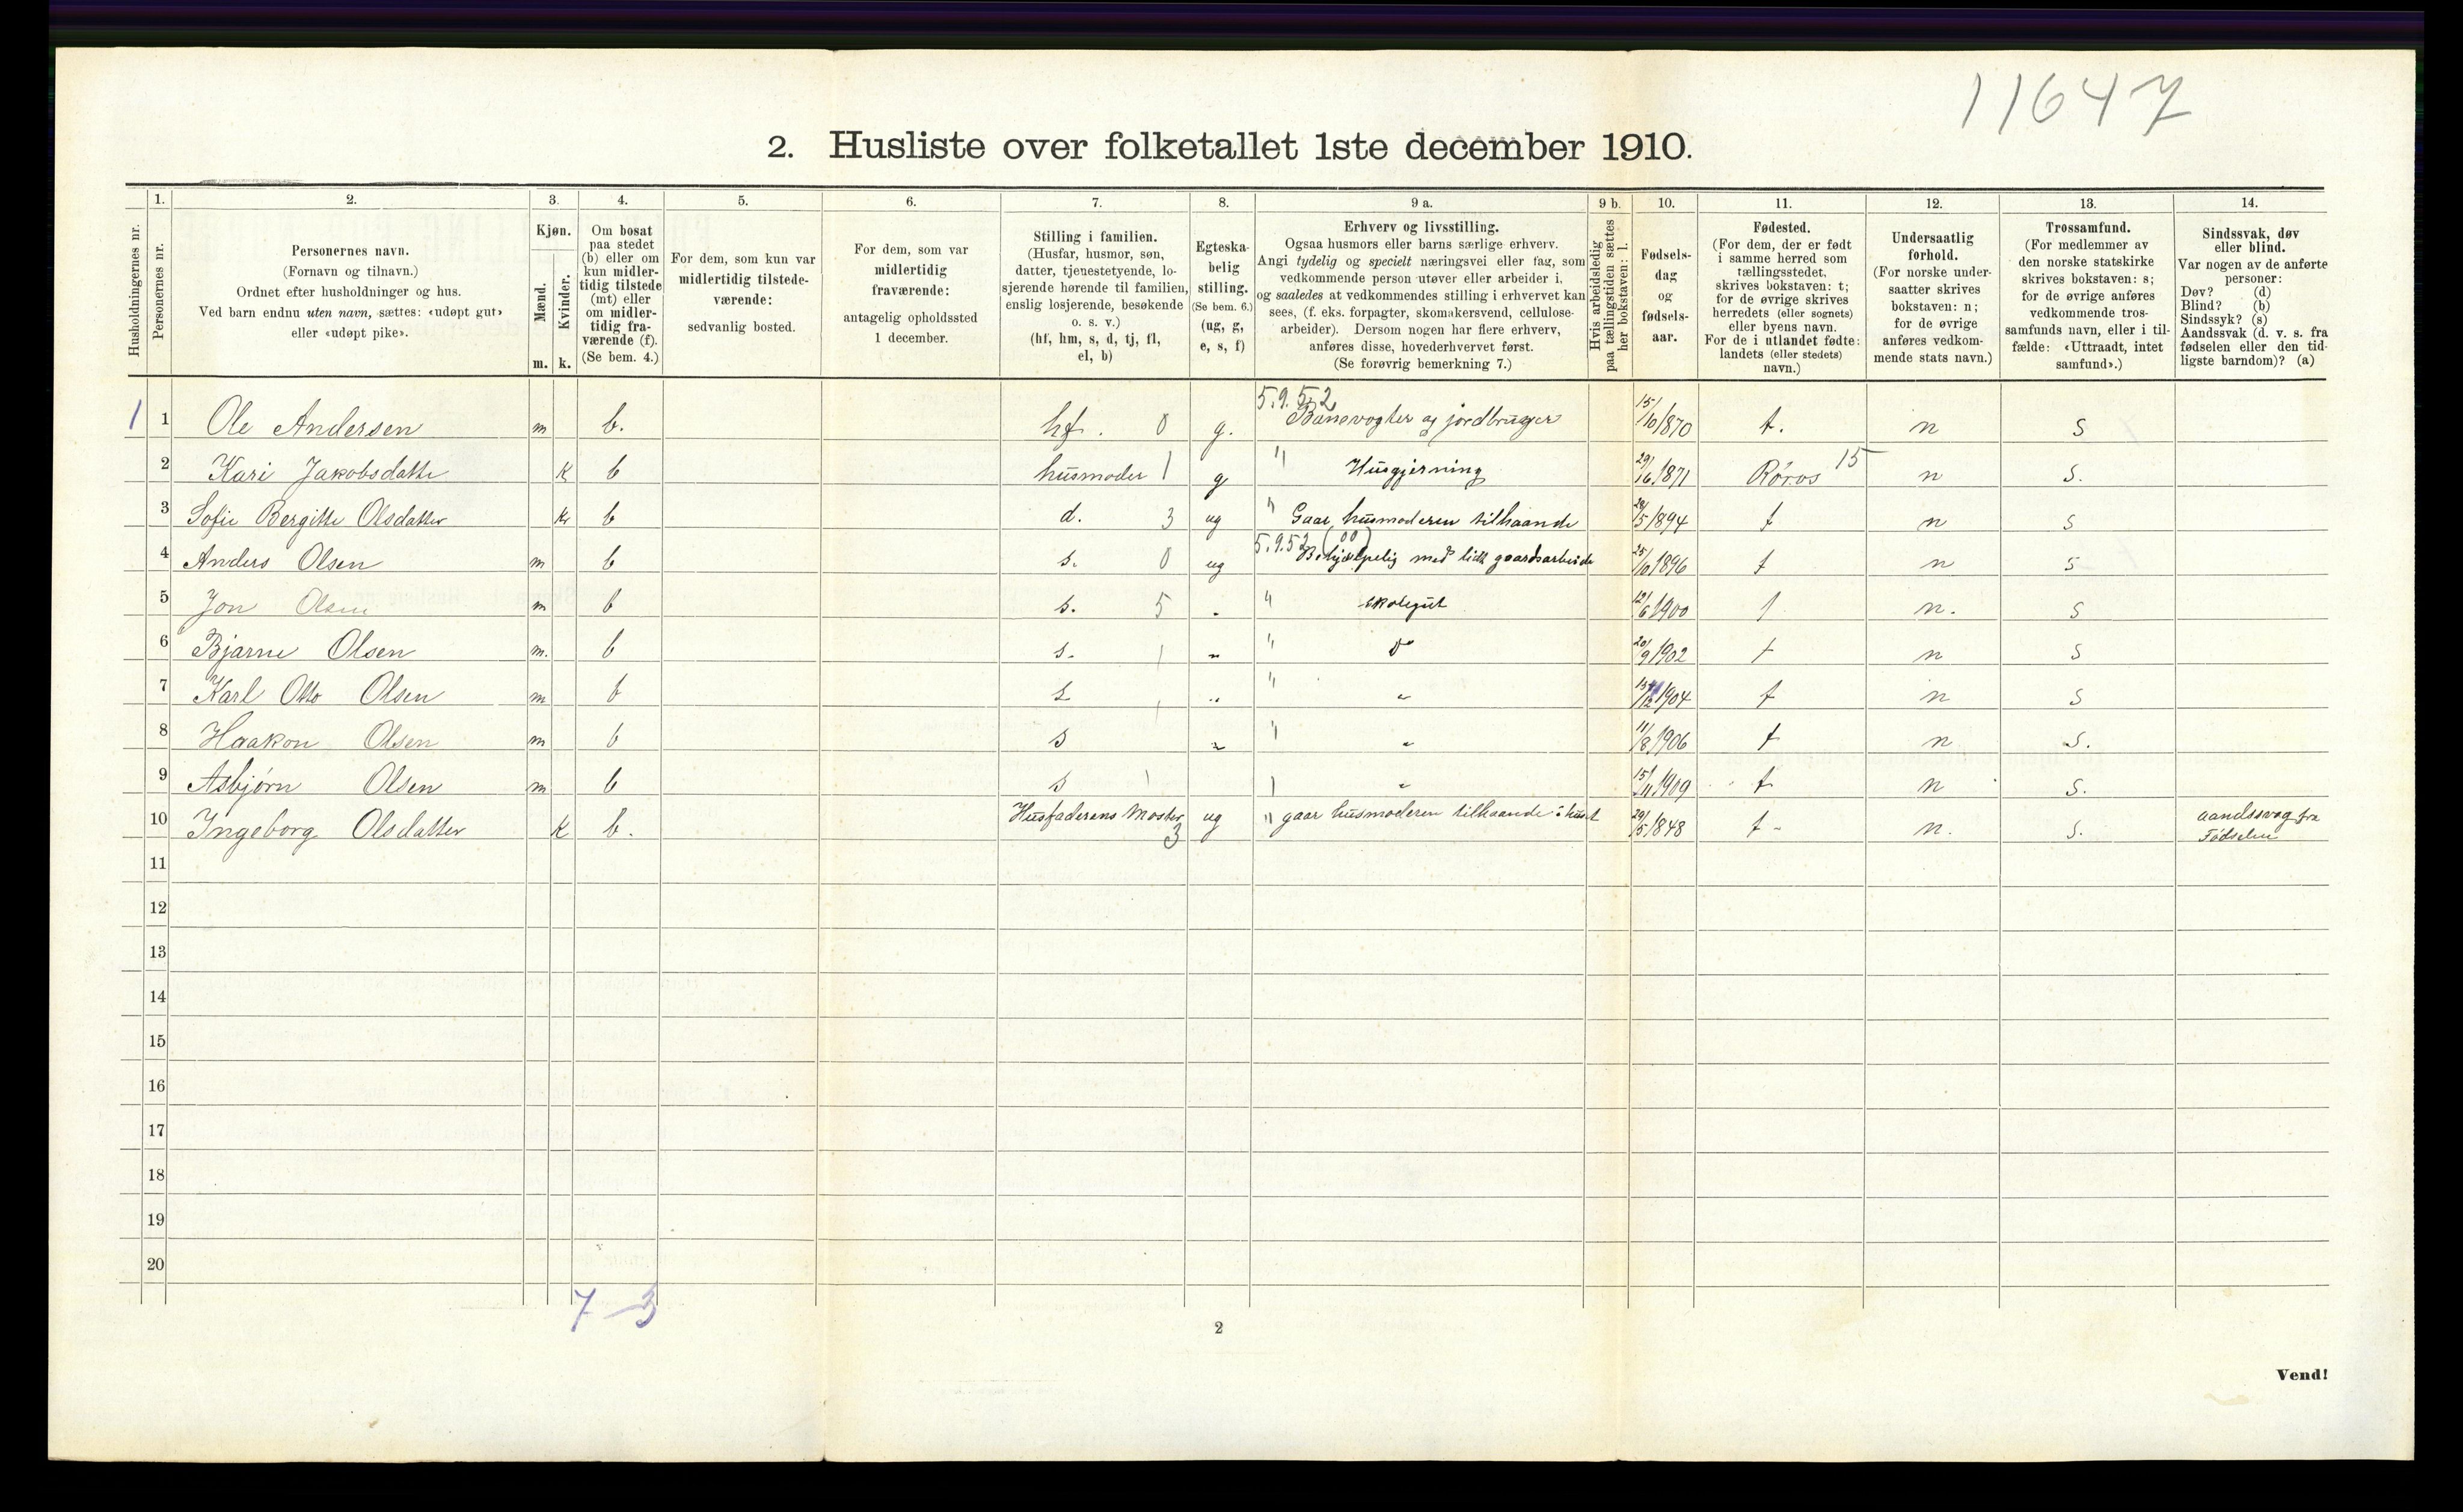 11647
2. Husliste over folketallet 1ste december 1910.
Husholdningernes nr.
1.
Personernes nr.
2.
Personernes navn.
(Fornavn og tilnavn.)
Ordnet efter husholdninger og hus.
Ved barn endnu uten navn, sættes: «udøpt gut»
eller «udøpt pike».
3.
Kjøn.
Mænd.
Kvinder.
m. k.
4.
Om bosat
paa stedet
(b) eller om
kun midler-
tidig tilstede
(mt) eller
om midler-
tidig fra-
værende (f).
(Se bem. 4.)
5.
For dem, som kun var
midlertidig tilstede-
værende:
sedvanlig bosted.
6.
For dem, som var
midlertidig
fraværende:
antagelig opholdssted
1 december.
7.
Stilling i familien.
(Husfar, husmor, søn,
datter, tjenestetyende, lo-
sjerende hørende til familien,
enslig losjerende, besøkende
o. s. v.)
(hf, hm, s, d, tj, fl,
el, b)
8.
Egteska-
belig
stilling.
(Se bem. 6.)
(ug, g,
e, s, f)
9 a.
Erhverv og livsstilling.
Ogsaa husmors eller barns særlige erhverv.
Angi tydelig og specielt næringsvei eller fag, som
vedkommende person utøver eller arbeider i,
og saaledes at vedkommendes stilling i erhvervet kan
sees, (f. eks. forpagter, skomakersvend, cellulose-
arbeider). Dersom nogen har flere erhverv,
anføres disse, hovederhvervet først.
(Se forøvrig bemerkning 7.)
9 b.
Hvis arbeidsledig
paa tællingstiden sættes
her bokstaven: l.
10.
Fødsels-
dag
og
fødsels-
aar.
11.
Fødested.
(For dem, der er født
i samme herred som
tællingsstedet,
skrives bokstaven: t;
for de øvrige skrives
herredets (eller sognets)
eller byens navn.
For de i utlandet fødte:
landets (eller stedets)
navn.)
12.
Undersaatlig
forhold.
(For norske under-
saatter skrives
bokstaven: n;
for de øvrige
anføres vedkom-
mende stats navn.)
13.
Trossamfund.
(For medlemmer av
den norske statskirke
skrives bokstaven: s;
for de øvrige anføres
vedkommende tros-
samfunds navn, eller i til-
fælde: «Uttraadt, intet
samfund».)
14.
Sindssvak, døv
eller blind.
Var nogen av de anførte
personer:
Døv? (d)
Blind? (b)
Sindssyk? (s)
Aandssvak (d. v. s. fra
fødselen eller den tid-
ligste barndom)? (a)
5.9.5.2
1 1 Ole Andersen m b. hf. 0 g. Banevogter og jordbruger 15/10 1870 t. n s
2 Kari Jakobsdatter k b husmoder 1 g " Husgjerning 29/6 1871 Røros 15 n s.
3 Sofie Bergitte Olsdatter k b d. 3 ug " Gaar husmoderen tilhaande 28/5 1894 t n s
5.9.52 (00)
4 Anders Olsen m b s. 0 ug Behjælpelig med lidt gaardsarbeide 25/10 1896 t n s
5 Jon Olsen m b s. 5 - " skolegut 12/6 1900 t n. s
6 Bjarne Olsen m. b s. 1 " " do 20/9 1902 t n s
7 Karl Otto Olsen m b s 1 " " " 1904 t n s
8 Haakon Olsen m b s " " " 11/8 1906 t n s.
9 Asbjørn Olsen m b s 1 " 15/11 1909 t n s.
10 Ingeborg Olsdatter k b. Husfaderens Moster 3 ug " gaar husmoderen tilhaande i huset 29/5 1848 t - n. s. aandssvag fra Fødselen
11
12
13
14
15
16
17
18
19
20
7 - 3
2
Vend!